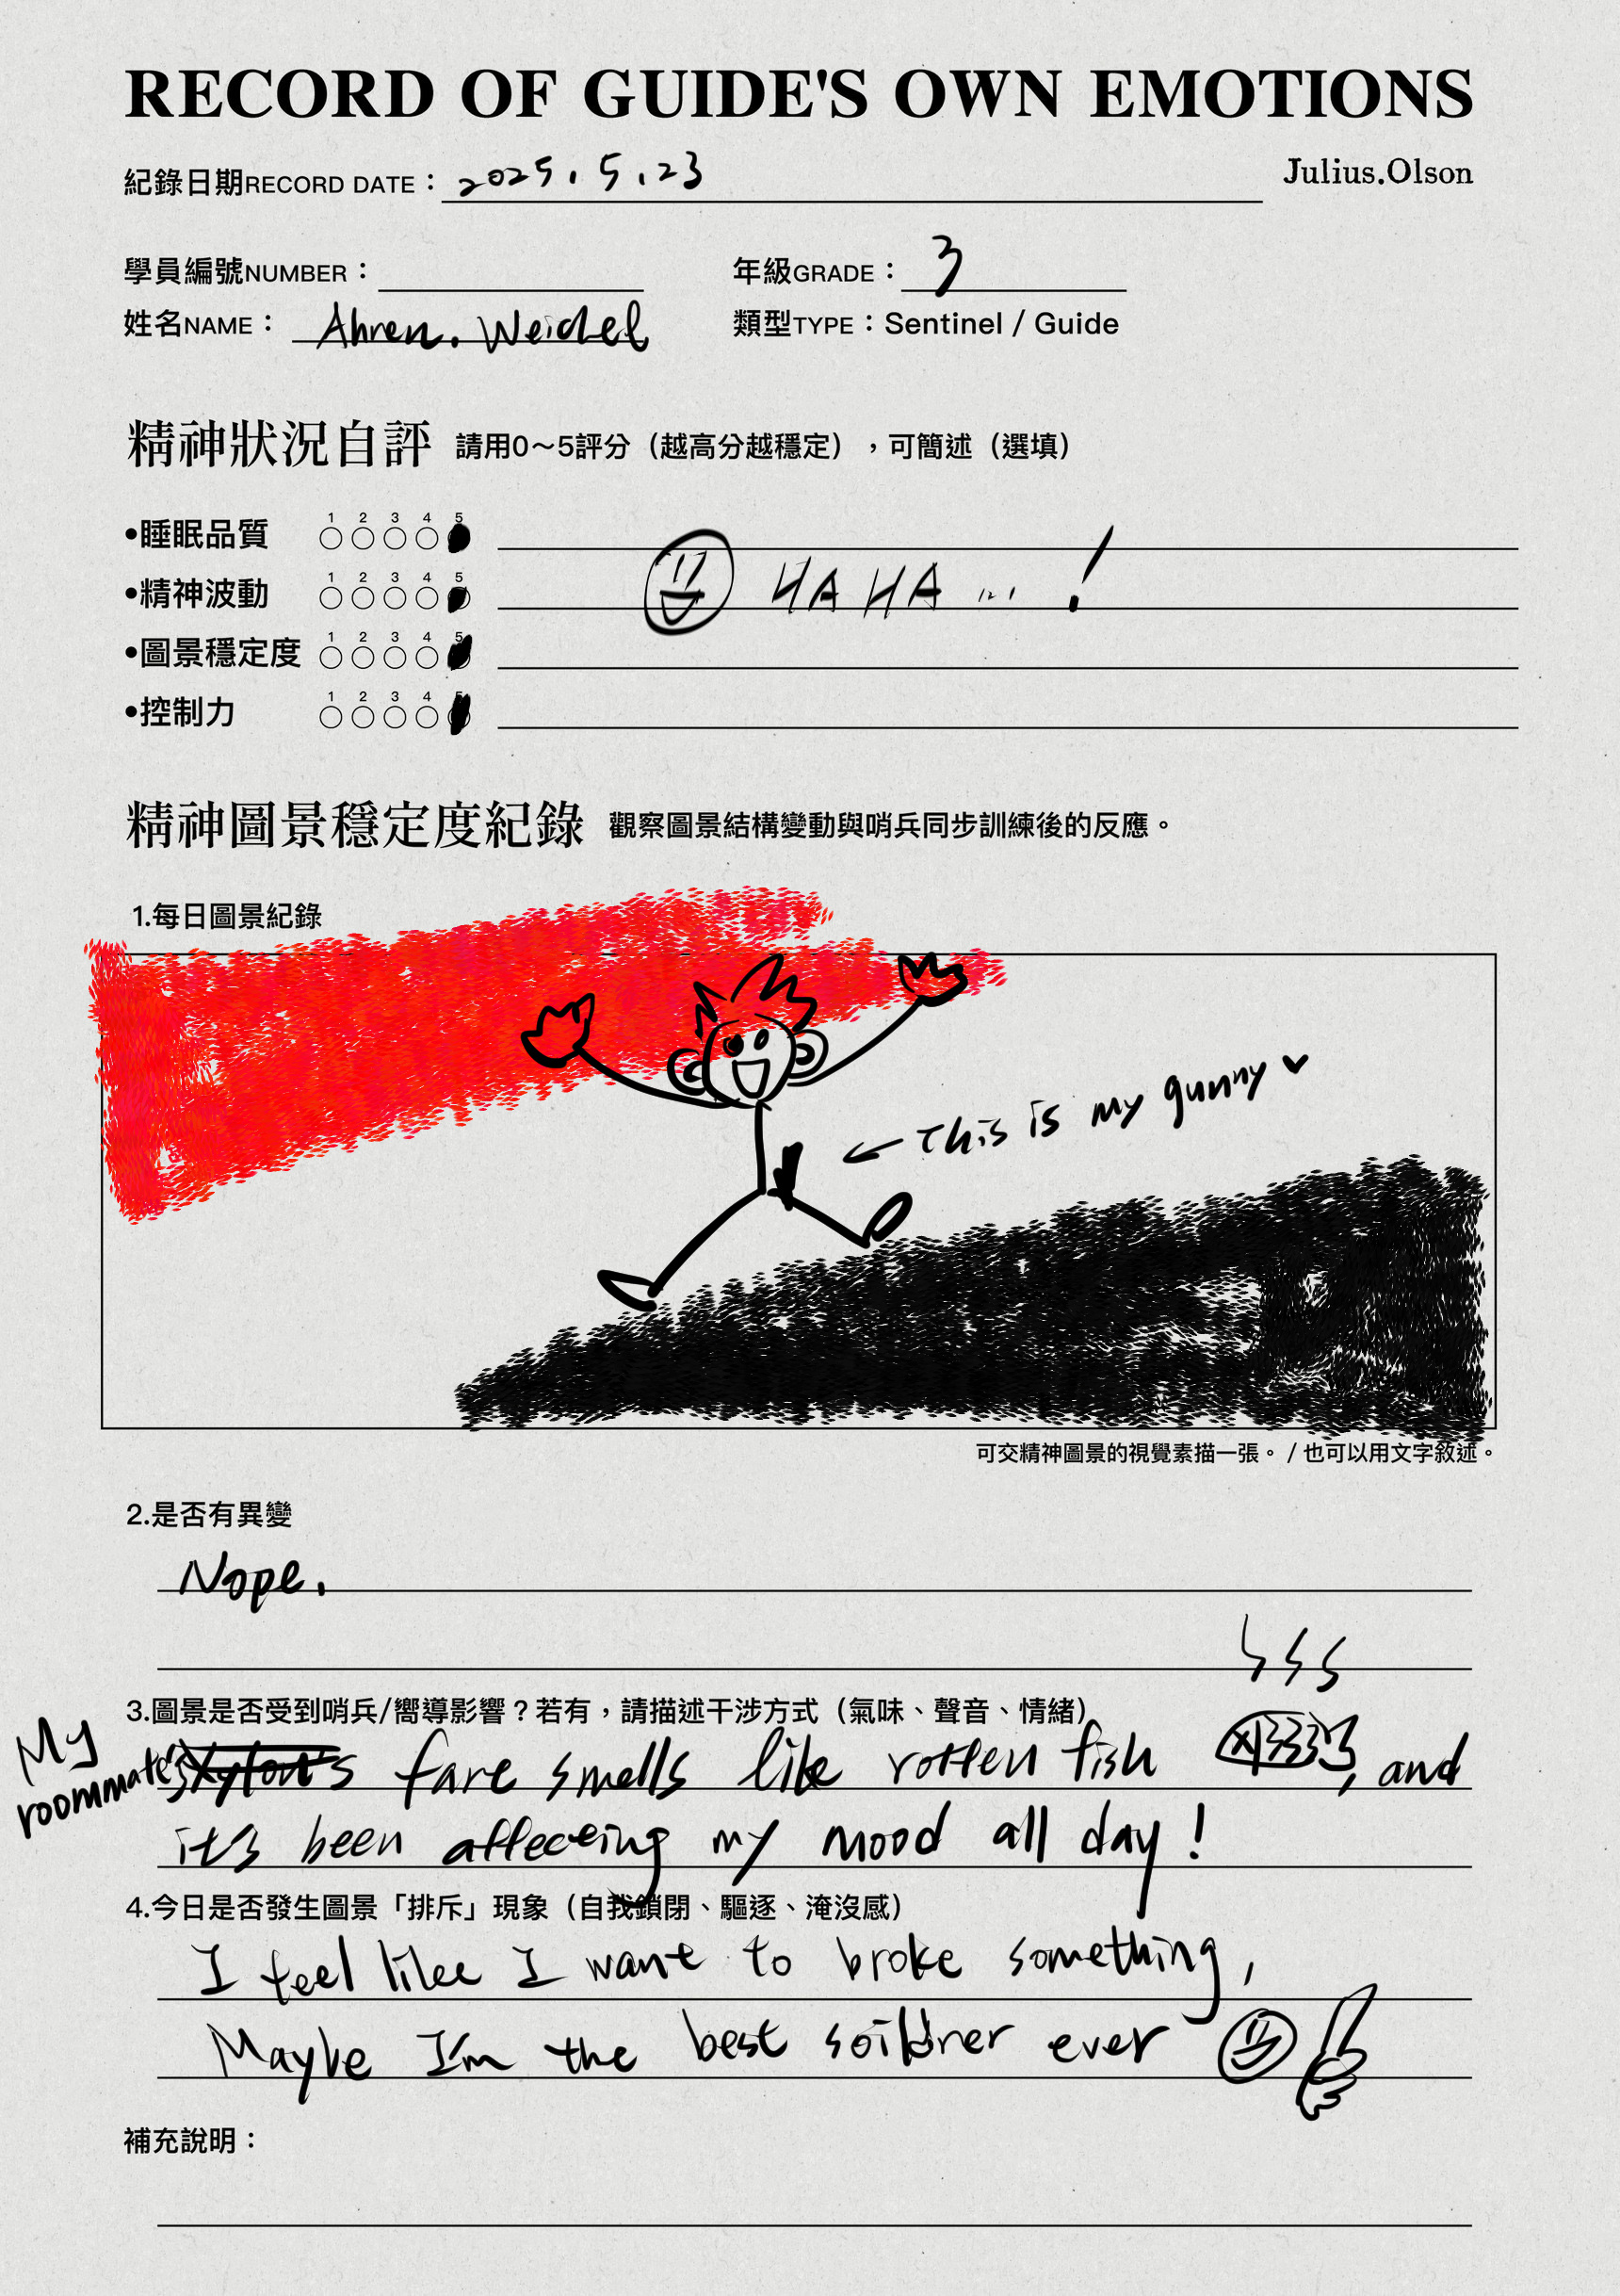 RECORD OF GUIDE'S OWN EMOTIONS
紀錄日期RECORD DATE：2025.5.23
Julius.Olson
學員編號NUMBER：
年級GRADE：3
姓名NAME：Ahren. Weidel
類型TYPE：Sentinel / Guide
精神狀況自評 請用0～5評分（越高分越穩定），可簡述（選填）
•睡眠品質 1 2 3 4 5
•精神波動 1 2 3 4 5 HAHA...!
•圖景穩定度 1 2 3 4 5
•控制力 1 2 3 4 5
精神圖景穩定度紀錄 觀察圖景結構變動與哨兵同步訓練後的反應。
1.每日圖景紀錄
← This is my gunny ♥
可交精神圖景的視覺素描一張。 / 也可以用文字敘述。
2.是否有異變
Nope.
3.圖景是否受到哨兵/嚮導影響？若有，請描述干涉方式（氣味、聲音、情緒）
My roommate's fare smells like rotten fish, and
it's been affeceing my mood all day!
4.今日是否發生圖景「排斥」現象（自我鎖閉、驅逐、淹沒感）
I feel like I want to broke something,
Maybe I'm the best ever
補充說明：